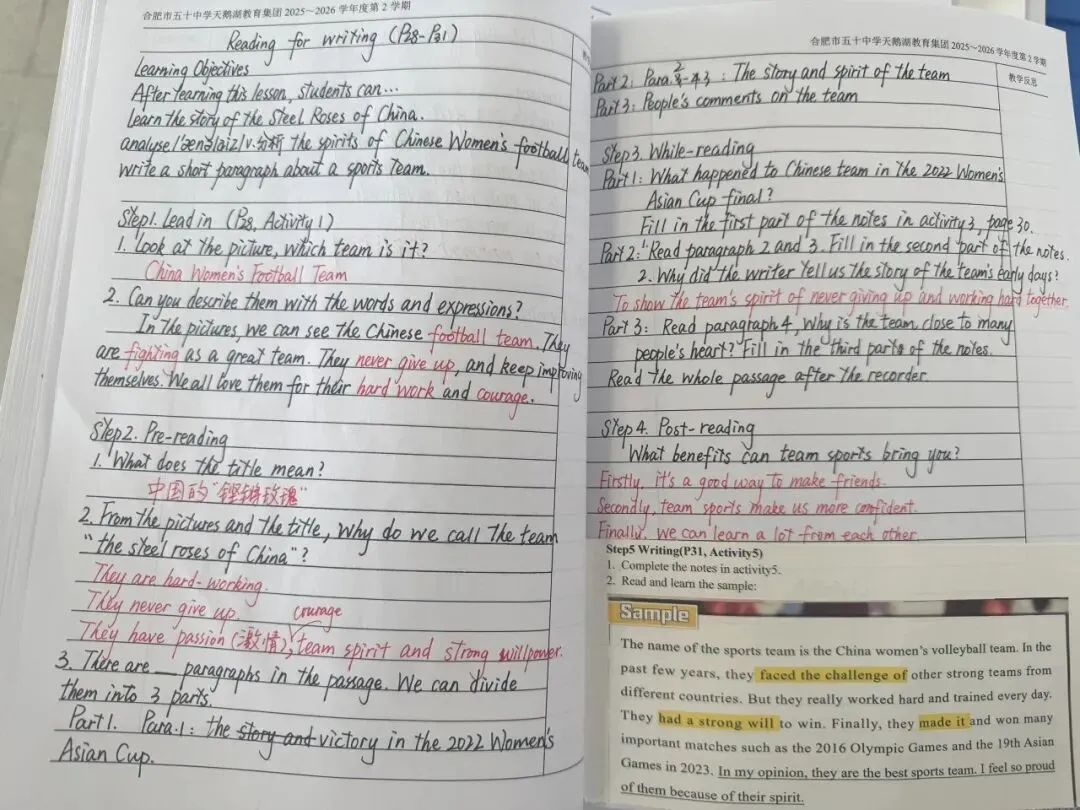 合肥市五十中学天鹅湖教育集团 2025～2026 学年度第 2 学期
Reading for writing (P28-P31)
Learning Objectives
After learning this lesson, students can...
Learn the story of the Steel Roses of China.
analyse/ˈænəlaiz/v.分析 the spirits of Chinese Women's football team
write a short paragraph about a sports team.
Step1. Lead in (P28, Activity 1)
1. Look at the picture, which team is it?
China Women's Football Team
2. Can you describe them with the words and expressions?
In the pictures, we can see the Chinese football team. They
are fighting as a great team. They never give up, and keep improving
themselves. We all love them for their hard work and courage.
Step2. Pre-reading
1. What does the title mean?
中国的"铿锵玫瑰"
2. From the pictures and the title, why do we call the team
"the steel roses of China"?
They are hard-working.
They never give up.
courage
They have passion (激情), team spirit and strong willpower.
3. There are __ paragraphs in the passage. We can divide
them into 3 parts.
Part 1. Para.1: the story and victory in the 2022 Women's
Asian Cup.
合肥市五十中学天鹅湖教育集团 2025～2026 学年度第 2 学期
教学反思
Part 2: Para. 2-3 : The story and spirit of the team
Part 3: People's comments on the team
Step 3. While-reading
Part 1: What happened to Chinese team in the 2022 Women's
Asian Cup final?
Fill in the first part of the notes in activity 3, page 30.
Part 2: 1. Read paragraph 2 and 3. Fill in the second part of the notes.
2. Why did the writer tell us the story of the team's early days?
To show the team's spirit of never giving up and working hard together.
Part 3: Read paragraph 4, Why is the team close to many
people's heart? Fill in the third part of the notes.
Read the whole passage after the recorder.
Step 4. Post-reading
What benefits can team sports bring you?
Firstly, it's a good way to make friends.
Secondly, team sports make us more confident.
Finally, we can learn a lot from each other
Step5 Writing(P31, Activity5)
1. Complete the notes in activity5.
2. Read and learn the sample:
Sample
The name of the sports team is the China women's volleyball team. In the
past few years, they faced the challenge of other strong teams from
different countries. But they really worked hard and trained every day.
They had a strong will to win. Finally, they made it and won many
important matches such as the 2016 Olympic Games and the 19th Asian
Games in 2023. In my opinion, they are the best sports team. I feel so proud
of them because of their spirit.